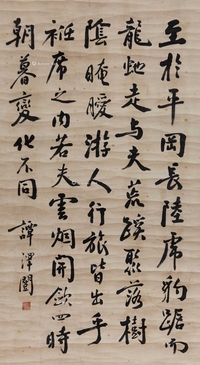 至於平岡長陸虎豹踞而
龍虵走与夫荒蹊聚落樹
陰晻曖游人行旅皆出乎
衽席之内若夫雲烟開歛四時
朝暮變化不同
譚澤闓